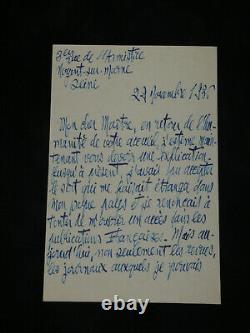 rue de l'Armistice
Nogent-sur-Marne
Seine
23 Novembre 193
Mon cher Maître, en retour de l'hu-
manité de votre accueil, j'estime main-
tenant vous devoir une explication.
Jusqu'à présent, j'avais pu accepter
le sort qui me faisait étranger dans
mon propre pays et je renonçais à
tenter de m'ouvrir un accès dans les
publications Françaises. Mais au-
jourd'hui, non seulement les revues,
les journaux auxquels je pouvais